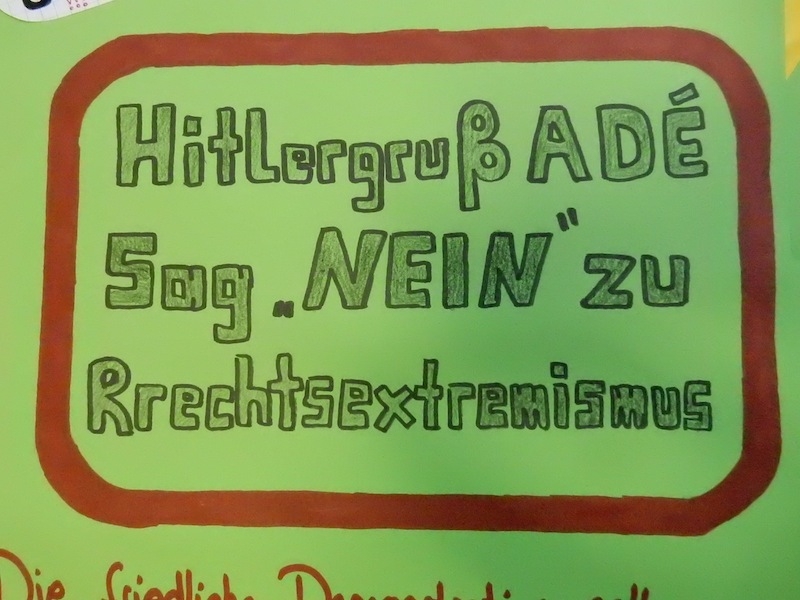 Hitlergruß ADÉ
Sag „NEIN" zu
Rrechtsextremismus
Die friedliche